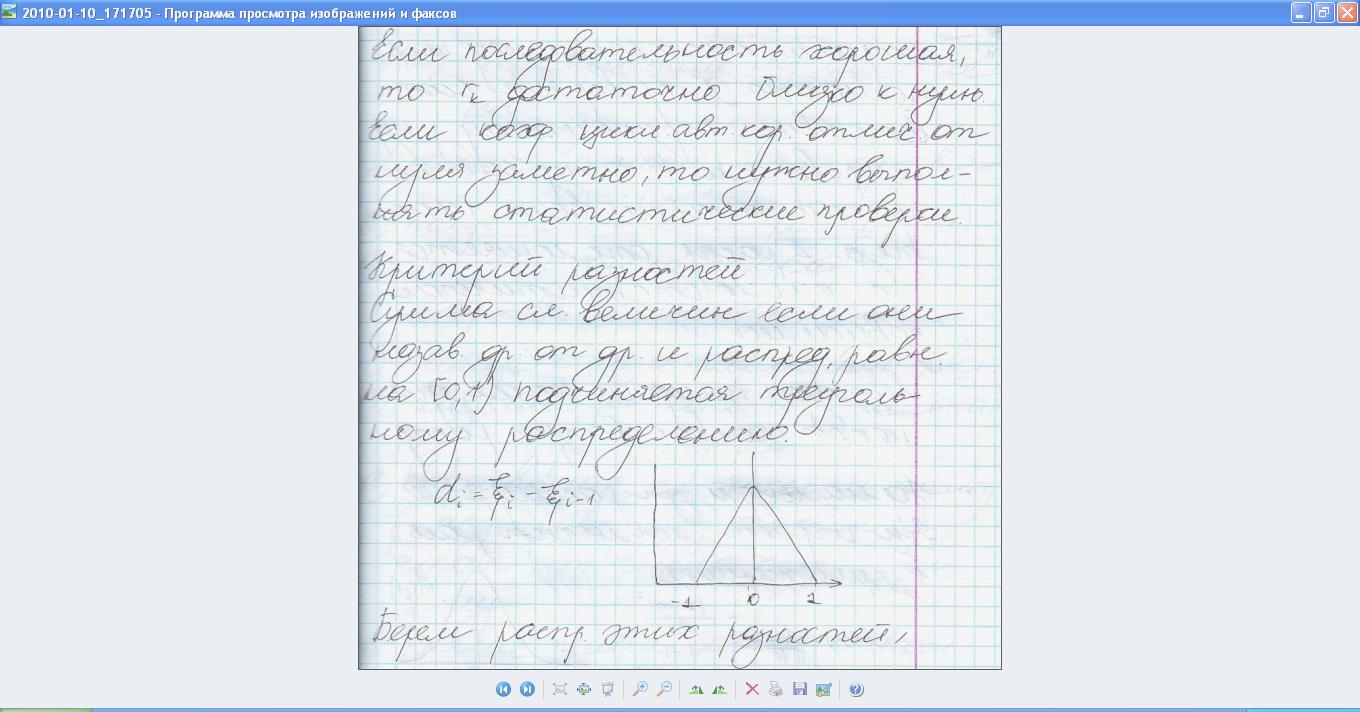 2010-01-10_171705 - Программа просмотра изображений и факсов
Если последовательность хорошая,
то rₖ достаточно близко к нулю.
Если коэф. цикл авт. кор. отлич. от
нуля заметно, то нужно выпол-
нять статистические проверки.
Критерий разностей.
Сумма сл. величин если они
незав. др. от др. и распред. равн.
на [0,1) подчиняется треуголь-
ному распределению.
dᵢ = ξᵢ - ξᵢ₋₁
-1 0 1
Берем распр. этих разностей,